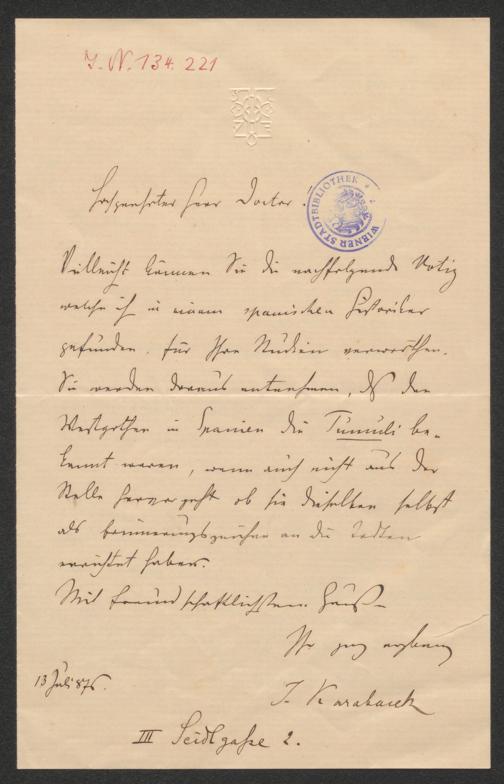 I.N. 134.221
WIENER STADTBIBLIOTHEK
Hochgeehrter Herr Doctor.
Vielleicht können Sie die nachfolgende Notiz
welche ich in einem spanischen Historiker
gefunden, für Ihre Studien verwerthen.
Sie werden daraus entnehmen, dß den
Westgothen in Spanien die Tumuli be-
kannt waren, wenn auch nicht aus der
Stelle hervorgeht ob sie dieselben selbst
als Erinnerungszeichen an die Todten
errichtet haben.
Mit freundschaftlichsten Gruß
Ihr ganz ergebener
13 Juli 876.
J. Karabacek
III Seidlgasse 2.